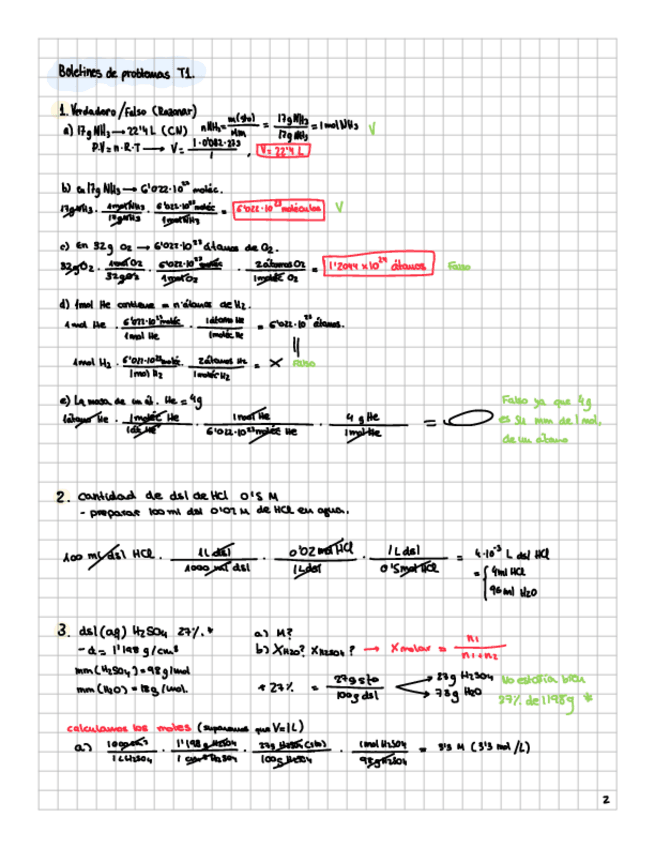 Boletines de problemas T1.
1. Verdadero/Falso (Razonar)
a) 17g NH₃ → 22'4 L (CN) nNH₃ = m(sto)/Mm = 17g NH₃/17g NH₃ = 1 mol NH₃ V
P.V = n.R.T → V = 1·0'082·273/1, V = 22'4 L
b) en 17g NH₃ → 6'022·10²³ moléc.
17g NH₃ · 1mol NH₃/17g NH₃ · 6'022·10²³ moléc/1mol NH₃ = 6'022·10²³ moléculas V
c) En 32g O₂ → 6'022·10²³ átomos de O₂.
32g O₂ · 1mol O₂/32g O₂ · 6'022·10²³ moléc/1mol O₂ · 2átomos O₂/1moléc O₂ = 1'2044 x10²⁴ átomos Falso
d) 1mol He contiene = nº átomos de H₂.
1 mol He · 6'022·10²³ moléc/1mol He · 1átomo He/1moléc He = 6'022·10²³ átomos.
1mol H₂ · 6'022·10²³ moléc/1mol H₂ · 2átomos H₂/1moléc H₂ = X Falso
e) La masa de un át. He = 4g
1átomo He · 1moléc He/1át He · 1mol He/6'022·10²³ moléc He · 4 g He/1mol He =
Falso ya que 4g
es su mm de 1 mol,
de un átomo
2. Cantidad de dsl de HCl 0'5 M
- preparar 100 ml dsl 0'02 M de HCl en agua.
100 ml dsl HCl · 1L dsl/1000 ml dsl · 0'02 mol HCl/1L dsl · 1L dsl/0'5mol HCl = 4·10⁻³ L dsl HCl
= { 4ml HCl
96 ml H₂O
3. dsl (aq) H₂SO₄ 27%.* a) M?
- d = 1'198 g/cm³ b) XH₂O? XH₂SO₄? → Xmolar = n₁/n₁+n₂
mm (H₂SO₄) = 98 g/mol
mm (H₂O) = 18 g/mol. * 27% = 27g sto/100g dsl → 27g H₂SO₄
→ 73g H₂O
No estaría bien
27% de 1198g *
calculamos los moles (suponemos que V=1L)
a) 1000cm³/1L H₂SO₄ · 1'198 g H₂SO₄/1 cm³ H₂SO₄ · 27g H₂SO₄(sto)/100g H₂SO₄ · 1mol H₂SO₄/98g H₂SO₄ = 3'3 M (3'3 mol/L)
2